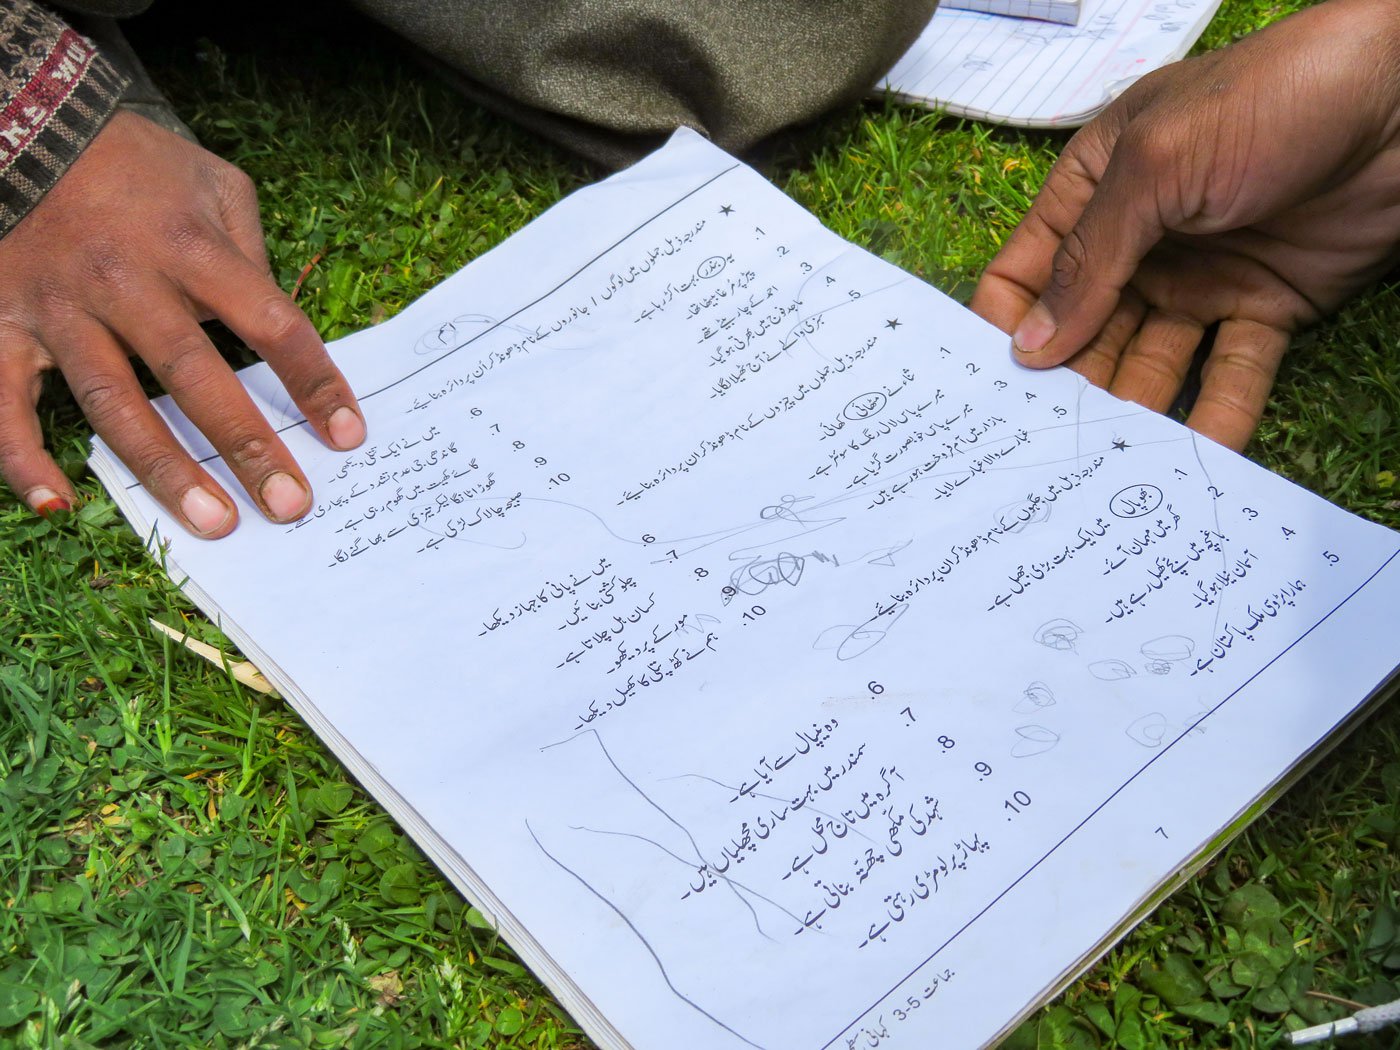 اسم
★ مندرجہ ذیل جملوں میں لوگوں / جانوروں کے نام ڈھونڈ کر ان پر دائرہ بنائیے۔
1. یہ بندر بہت اکڑ رہا ہے۔
2. پیڑ پر مُرغا بیٹھا تھا۔
3. احمد کے چار بیٹے تھے۔
4. ماجد فوج میں بھرتی ہو گیا۔
5. سبزی والے نے آج ٹھیلا لگایا۔
6. میں نے ایک تتلی دیکھی۔
7. گاندھی جی عدم تشدد کے پجاری تھے۔
8. گائے کھیت میں گھوم رہی ہے۔
9. گھوڑا تانگا لیکر تیزی سے بھاگنے لگا۔
10. صبیحہ چالاک لڑکی ہے۔
★ مندرجہ ذیل جملوں میں چیزوں کے نام ڈھونڈ کر ان پر دائرہ بنائیے۔
1. ثناء نے مٹھائی کھائی۔
2. میرے پاس لال رنگ کا سوئٹر ہے۔
3. میرے پاس خوبصورت گڑیا ہے۔
4. بازار میں آم فروخت ہو رہے ہیں۔
5. غبارے والا غبارے لایا۔
6. میں نے پانی کا جہاز دیکھا۔
7. چلو کشتی بنائیں۔
8. کسان ہل چلاتا ہے۔
9. مور کے پر دیکھو۔
10. ہم نے کٹھ پتلی کا کھیل دیکھا۔
★ مندرجہ ذیل میں جگہوں کے نام ڈھونڈ کر ان پر دائرہ بنائیے۔
1. بھوپال میں ایک بہت بڑی جھیل ہے۔
2. گھر میں مہمان آئے۔
3. باغیچہ میں بچے کھیل رہے ہیں۔
4. آسمان نیلا ہو گیا۔
5. ہمارا پڑوسی ملک پاکستان ہے۔
6. وہ نیپال سے آیا ہے۔
7. سمندر میں بہت ساری مچھلیاں ہیں۔
8. آگرہ میں تاج محل ہے۔
9. شہد کی مکھی چھتّہ بناتی ہے۔
10. پہاڑ پر لومڑی رہتی ہے۔
7
جماعت 3-5 کہانی